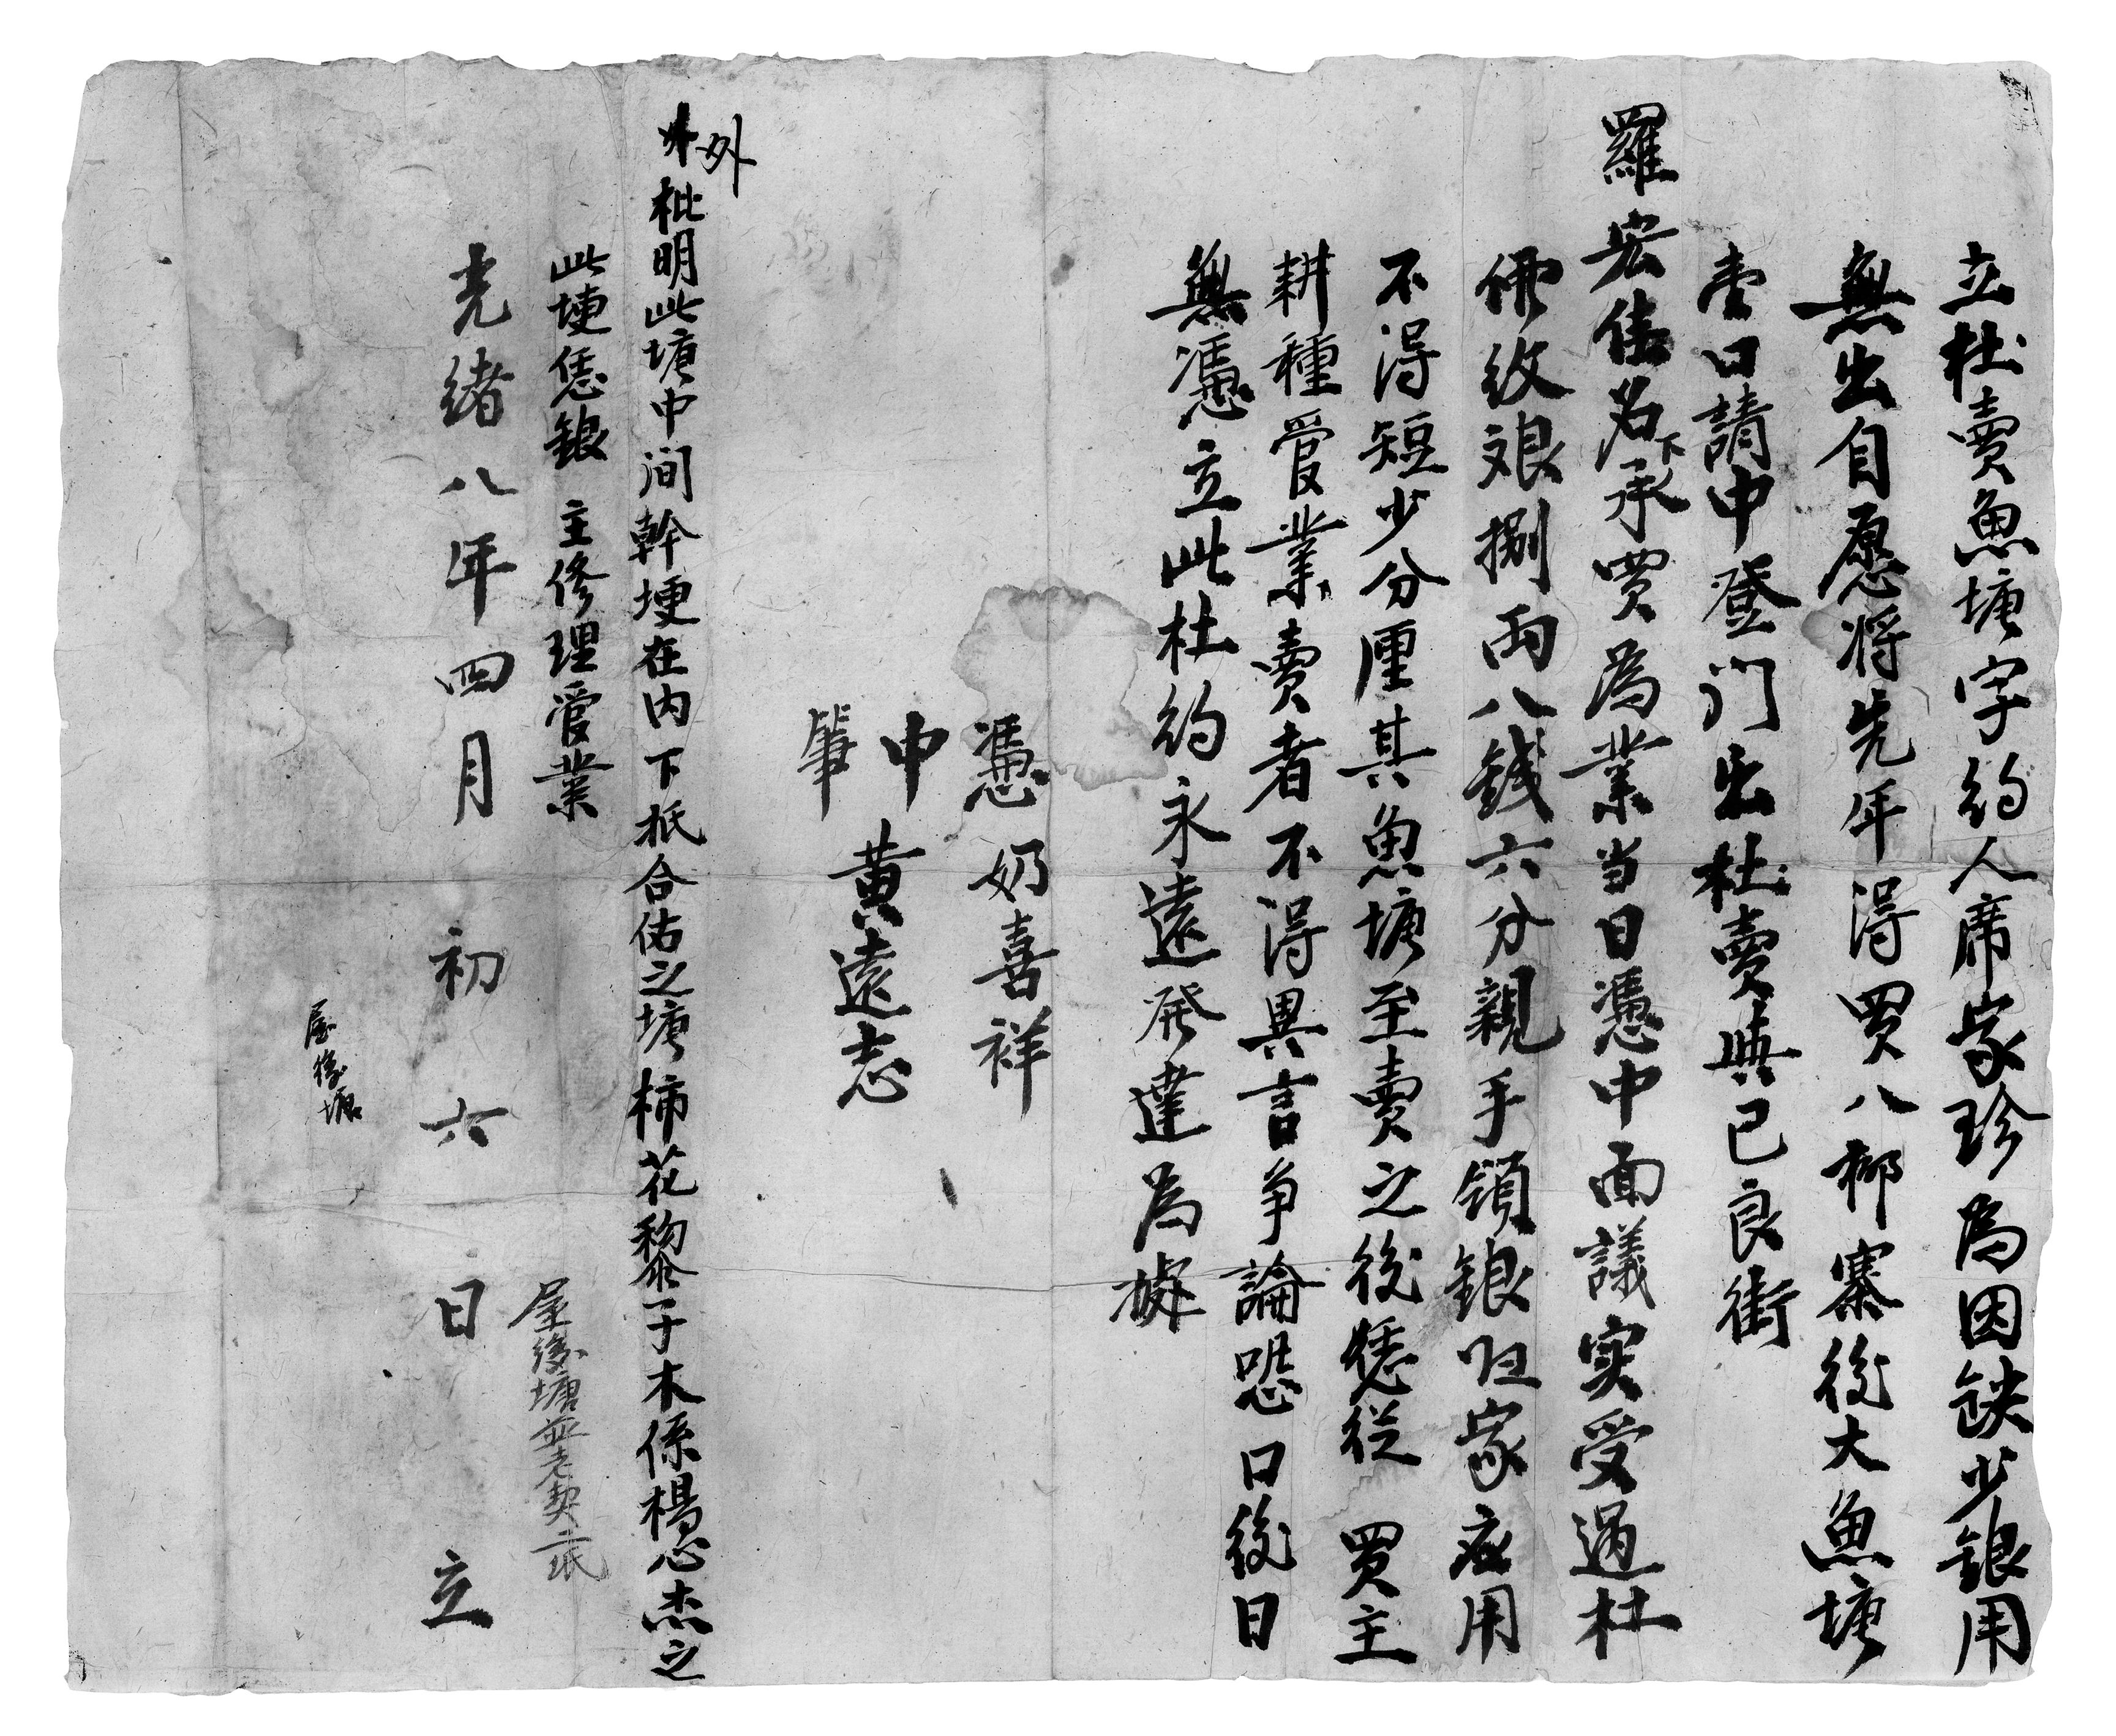 立杜賣魚塘字約人席家珍為因缺少銀用
無出自愿将先年得買八柳寨後大魚塘
壹口請中登门出杜賣與已良街
羅宏佳名下承買為業当日憑中面議实受過杜
価紋銀捌両八錢六分親手領銀归家应用
不得短少分厘其魚塘至賣之後恁從買主
耕種管業賣者不得異言争論恐口後日
無憑立此杜約永遠発達為據
憑 奶喜祥
中
筆 黄遠志
外
外批明此塘中间幹埂在内下抵合佑之塘柿花黎子木係楊心杰之
此埂恁銀主修理管業
光緒八年四月初六日立
屋後塘並老契一張
屋後塘